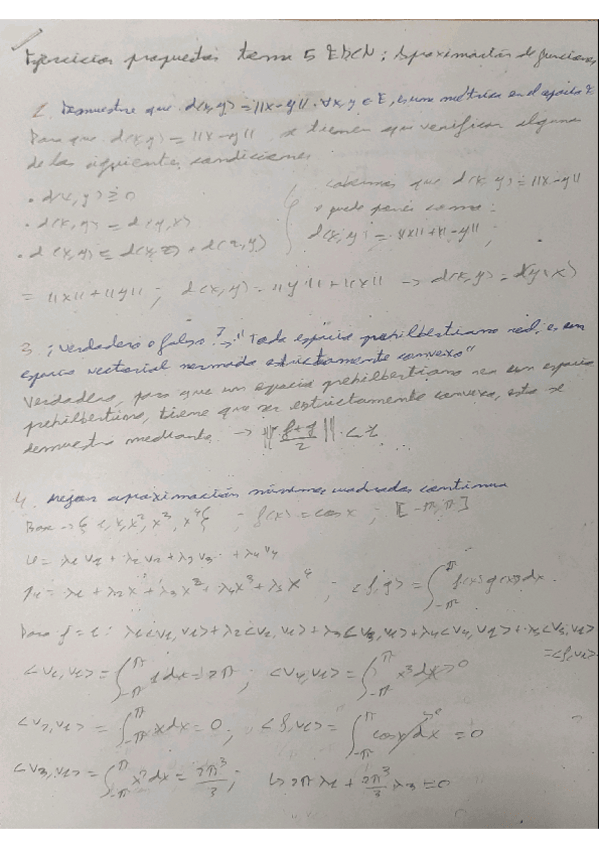 Ejercicios propuestos tema 5 : Aproximación de funciones
Demuestre que d(x,y) = ||x-y|| ∀x,y ∈ E, es una métrica en el espacio E
Para que d(x,y) = ||x-y|| se tienen que verificar alguna
de las siguientes condiciones
• d(x,y) ≥ 0
• d(x,y) = d(y,x)
• d(x,y) ≤ d(x,z) + d(z,y)
sabemos que d(x,y) = ||x-y||
se puede poner como:
d(x,y) = ||x|| + ||-y|| ;
= ||x|| + ||y|| ; d(x,y) = ||y|| + ||x|| → d(x,y) = d(y,x)
3. ¿Verdadero o falso? "Todo espacio prehilbertiano real, es un
espacio vectorial normado estrictamente convexo"
Verdadero, para que un espacio prehilbertiano sea un espacio
prehilbertiano, tiene que ser estrictamente convexo, esto se
demuestra mediante → ||f+g/2|| < 1
4. Mejor aproximación mínimos cuadrados continua
Base → {1, x, x², x³, x⁴} ; f(x) = cos x ; [-π, π]
u = λ1 v1 + λ2 v2 + λ3 v3 + λ4 v4
p4 = λ1 + λ2 x + λ3 x² + λ4 x³ + λ5 x⁴ ; <f,g> = ∫_{-π}^{π} f(x) g(x) dx
Para j = 1: λ1<v1,v1> + λ2<v2,v1> + λ3<v3,v1> + λ4<v4,v1> + λ5<v5,v1>
= <f,v1>
<v1,v1> = ∫_{-π}^{π} 1dx = 2π ; <v4,v1> = ∫_{-π}^{π} x³dx = 0
<v2,v1> = ∫_{-π}^{π} xdx = 0 ; <f,v1> = ∫_{-π}^{π} cosx dx = 0
<v3,v1> = ∫_{-π}^{π} x²dx = 2π³/3 ; ↳ 2π λ1 + 2π³/3 λ3 = 0